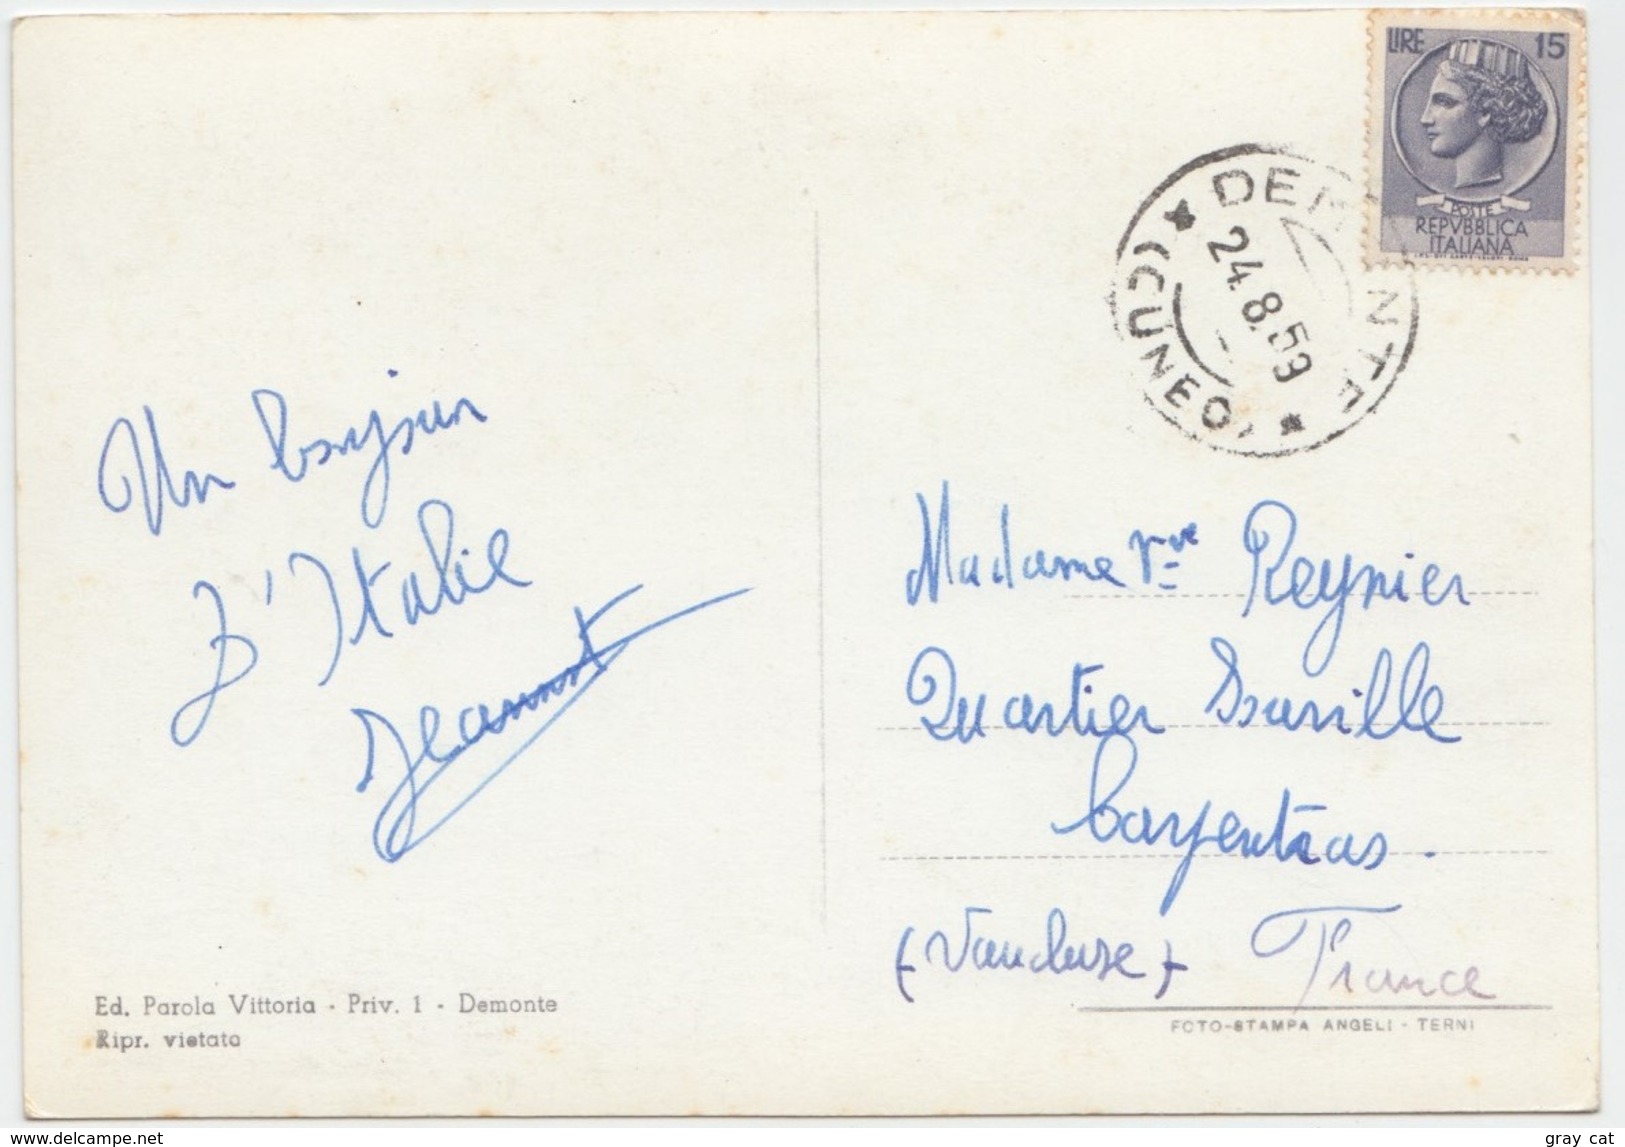 LIRE 15
POSTE
REPVBBLICA
ITALIANA
DEMONTE
(CUNEO)
24.8.59
Un bonjour
d'Italie
Jeannot
Madame Vve Reynier
Quartier
Carpentras.
(Vaucluse) France
Ed. Parola Vittoria - Priv. 1 - Demonte
Ripr. vietata
FOTO-STAMPA ANGELI - TERNI
www.delcampe.net
gray_cat